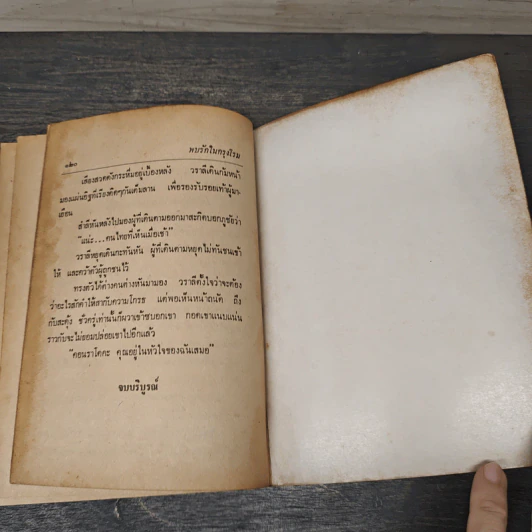 ๑๒๐
พบรักในกรุงโรม
เสียงสวดดังกระหึ่มอยู่เบื้องหลัง วราลีเดินก้มหน้า
มองแผ่นอิฐที่เรียงติดๆกันเต็มลาน เพื่อรองรับรอยเท้าผู้มา
เยือน
สำลีหันหลังไปมองผู้ที่เดินตามออกมาสะกิดบอกภูชัยว่า
"แน่ะ...คนไทยที่เห็นเมื่อเช้า"
วราลีหยุดเดินกะทันหัน ผู้ที่เดินตามหยุดไม่ทันชนเข้า
ให้ และคว้าตัวผู้ถูกชนไว้
ทรงตัวได้ต่างคนต่างหันมามอง วราลีตั้งใจว่าจะต้อง
ว่าอะไรสักคำให้สากับความโกรธ แต่พอเห็นหน้าถนัด ถึง
กับสะดุ้ง ชั่วครู่เท่านั้นก็ผวาเข้าซบอกเขา กอดเขาแนบแน่น
ราวกับจะไม่ยอมปล่อยเขาไปอีกแล้ว
"คอนราโดคะ คุณอยู่ในหัวใจของฉันเสมอ"
จบบริบูรณ์